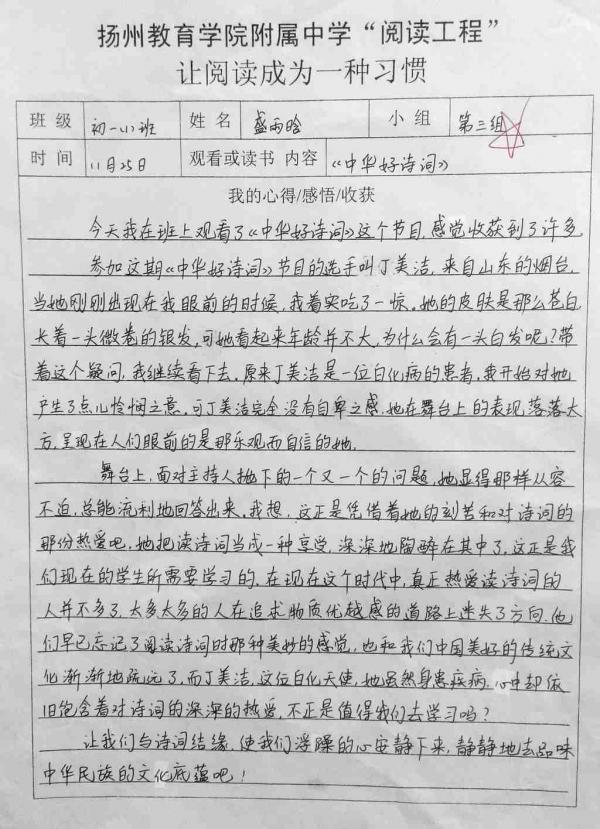 扬州教育学院附属中学“阅读工程”
让阅读成为一种习惯
班 级 初一(1)班 姓 名 盛雨晗 小 组 第三组
时 间 11月25日 观看或读书 内容 《中华好诗词》
我的心得/感悟/收获
今天我在班上观看了《中华好诗词》这个节目,感觉收获到了许多
参加这期《中华好诗词》节目的选手叫丁美洁,来自山东的烟台,
当她刚刚出现在我眼前的时候,我着实吃了一惊。她的皮肤是那么苍白
长着一头微卷的银发,可她看起来年龄并不大,为什么会有一头白发呢?带
着这个疑问,我继续看下去。原来丁美洁是一位白化病的患者,我开始对她
产生了点儿怜悯之意,可丁美洁完全没有自卑之感,她在舞台上的表现落落大
方,呈现在人们眼前的是那乐观而自信的她.
舞台上,面对主持人抛下的一个又一个的问题,她显得那样从容
不迫,总能流利地回答出来。我想,这正是凭借着她的刻苦和对诗词的
那份热爱吧。她把读诗词当成一种享受,深深地陶醉在其中了,这正是我
们现在的学生所需要学习的,在现在这个时代中,真正热爱读诗词的
人并不多了,太多太多的人在追求物质优越感的道路上迷失了方向,他
们早已忘记了阅读诗词时那种美妙的感觉,也和我们中国美好的传统文
化渐渐地疏远了,而丁美洁,这位白化天使,她虽然身患疾病,心中却依
旧饱含着对诗词的深深的热爱,不正是值得我们去学习吗?
让我们与诗词结缘,使我们浮躁的心安静下来,静静地去品味
中华民族的文化底蕴吧!